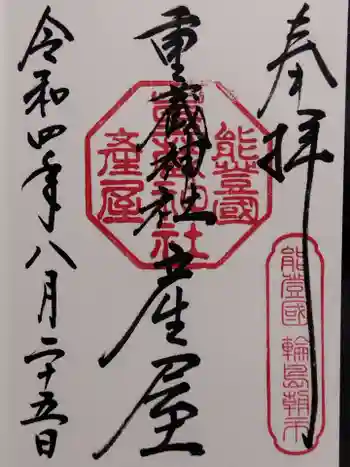 奉拝
能登國 輪島朝市
重蔵神社 産屋
能登國
重蔵神社
産屋
令和四年八月二十五日